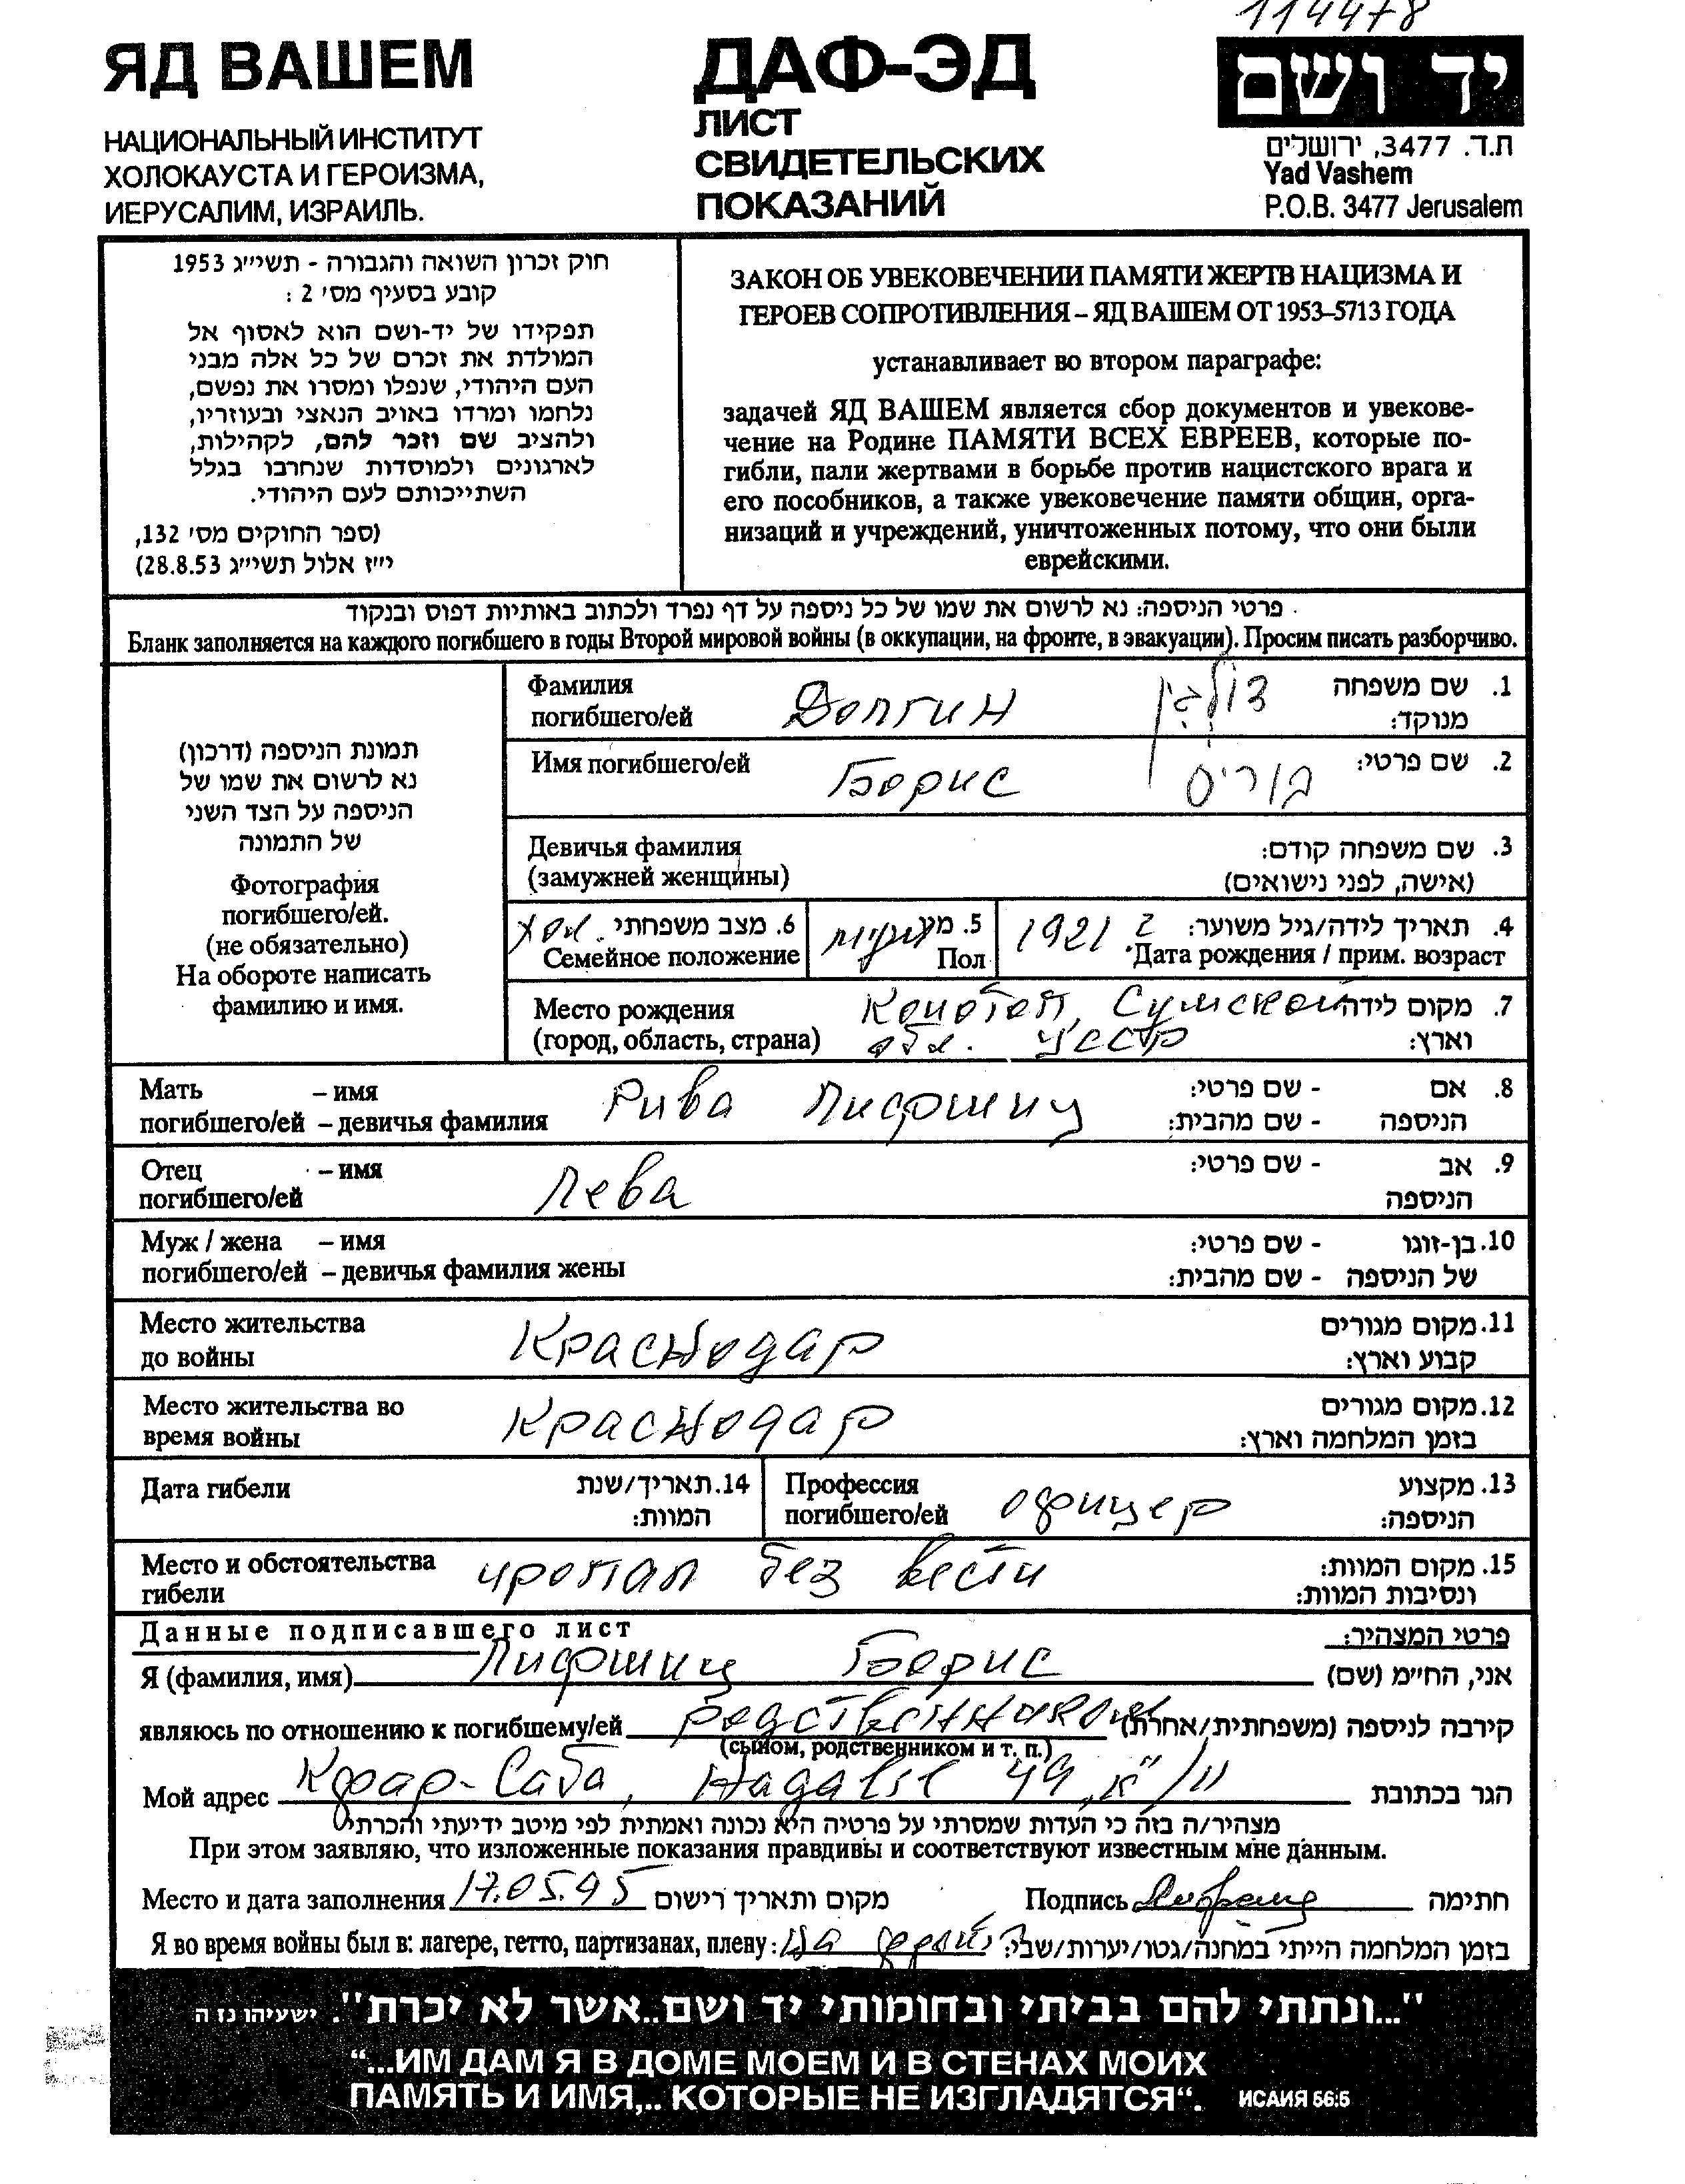 114478
ЯД ВАШЕМ
НАЦИОНАЛЬНЫЙ ИНСТИТУТ
ХОЛОКАУСТА И ГЕРОИЗМА,
ИЕРУСАЛИМ, ИЗРАИЛЬ.
ДАФ-ЭД
ЛИСТ
СВИДЕТЕЛЬСКИХ
ПОКАЗАНИЙ
יד ושם
ת.ד. 3477, ירושלים
Yad Vashem
P.O.B. 3477 Jerusalem
חוק זכרון השואה והגבורה - תשי״ג 1953
קובע בסעיף מס׳ 2 :
תפקידו של יד-ושם הוא לאסוף אל
המולדת את זכרם של כל אלה מבני
העם היהודי, שנפלו ומסרו את נפשם,
נלחמו ומרדו באויב הנאצי ובעוזריו,
ולהציב שם וזכר להם, לקהילות,
לארגונים ולמוסדות שנחרבו בגלל
השתייכותם לעם היהודי.
(ספר החוקים מס׳ 132,
י״ז אלול תשי״ג 28.8.53)
ЗАКОН ОБ УВЕКОВЕЧЕНИИ ПАМЯТИ ЖЕРТВ НАЦИЗМА И
ГЕРОЕВ СОПРОТИВЛЕНИЯ – ЯД ВАШЕМ ОТ 1953–5713 ГОДА
устанавливает во втором параграфе:
задачей ЯД ВАШЕМ является сбор документов и увекове-
чение на Родине ПАМЯТИ ВСЕХ ЕВРЕЕВ, которые по-
гибли, пали жертвами в борьбе против нацистского врага и
его пособников, а также увековечение памяти общин, орга-
низаций и учреждений, уничтоженных потому, что они были
еврейскими.
פרטי הניספה: נא לרשום את שמו של כל ניספה על דף נפרד ולכתוב באותיות דפוס ובנקוד
Бланк заполняется на каждого погибшего в годы Второй мировой войны (в оккупации, на фронте, в эвакуации). Просим писать разборчиво.
תמונת הניספה (דרכון)
נא לרשום את שמו של
הניספה על הצד השני
של התמונה
Фотография
погибшего/ей.
(не обязательно)
На обороте написать
фамилию и имя.
Фамилия
погибшего/ей Долгин דולגין
1. שם משפחה
מנוקד:
Имя погибшего/ей Борис בוריס 2. שם פרטי:
Девичья фамилия
(замужней женщины)
3. שם משפחה קודם:
(אישה, לפני נישואים)
4. תאריך לידה/גיל משוער:
Дата рождения / прим. возраст 1921 г.
5. מין
Пол
6. מצב משפחתי
Семейное положение хол.
Место рождения
(город, область, страна)
Конотоп, Сумской
обл. УССР
7. מקום לידה
וארץ:
Мать – имя
погибшего/ей – девичья фамилия Рива Лифшиц
8. אם - שם פרטי:
הניספה - שם מהבית:
Отец – имя
погибшего/ей Лева
9. אב - שם פרטי:
הניספה
Муж / жена – имя
погибшего/ей – девичья фамилия жены
10. בן-זוגו - שם פרטי:
של הניספה - שם מהבית:
Место жительства
до войны Краснодар
11. מקום מגורים
קבוע וארץ:
Место жительства во
время войны Краснодар
12. מקום מגורים
בזמן המלחמה וארץ:
Дата гибели
14. תאריך/שנת
המוות:
Профессия
погибшего/ей офицер
13. מקצוע
הניספה:
Место и обстоятельства
гибели пропал без вести
15. מקום המוות:
ונסיבות המוות:
Данные подписавшего лист פרטי המצהיר:
Я (фамилия, имя) Лифшиц Борис אני, החי״מ (שם)
являюсь по отношению к погибшему/ей родственником קירבה לניספה (משפחתית/אחרת)
(сыном, родственником и т. п.)
Мой адрес Кфар-Саба, Hagalil 49, הגר בכתובת
מצהיר/ה בזה כי העדות שמסרתי על פרטיה היא נכונה ואמתית לפי מיטב ידיעתי והכרתי
При этом заявляю, что изложенные показания правдивы и соответствуют известным мне данным.
Место и дата заполнения 17.05.95 מקום ותאריך רישום Подпись Лифшиц חתימה
Я во время войны был в: лагере, гетто, партизанах, плену: На фронте בזמן המלחמה הייתי במחנה/גטו/יערות/שבי:
"...ונתתי להם בביתי ובחומותי יד ושם..אשר לא יכרת". ישעיהו נז ה
“...ИМ ДАМ Я В ДОМЕ МОЕМ И В СТЕНАХ МОИХ
ПАМЯТЬ И ИМЯ,.. КОТОРЫЕ НЕ ИЗГЛАДЯТСЯ“. ИСАИЯ 56:5